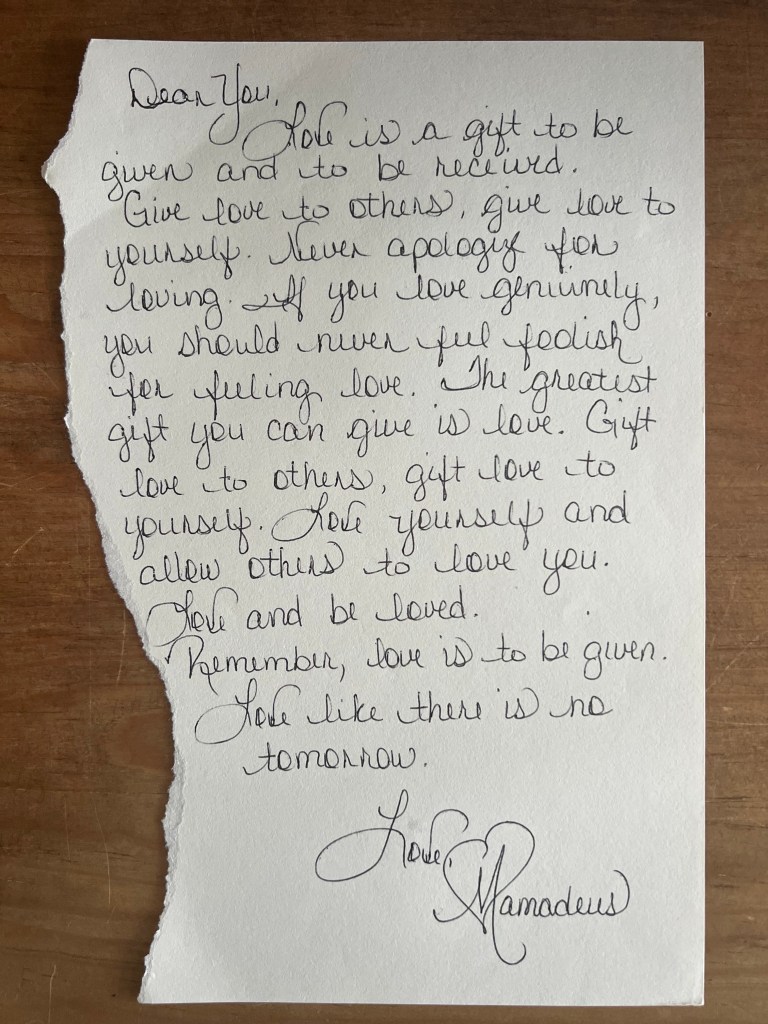 Dear You,
Love is a gift to be
given and to be received.
Give love to others, give love to
yourself. Never apologize for
loving. If you love genuinely,
you should never feel foolish
for feeling love. The greatest
gift you can give is love. Gift
love to others, gift love to
yourself. Love yourself and
allow others to love you.
Love and be loved.
Remember, love is to be given.
Love like there is no
tomorrow.
Love,
Mamadeus